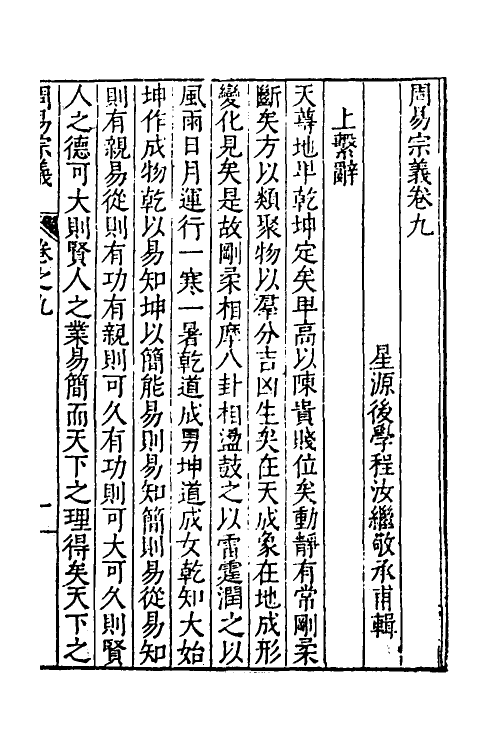 周易宗義卷九
星源後學程汝繼敬承甫輯
上繫辭
天尊地卑乾坤定矣卑高以陳貴賤位矣動靜有常剛柔
斷矣方以類聚物以羣分吉凶生矣在天成象在地成形
變化見矣是故剛柔相摩八卦相盪鼓之以雷霆潤之以
風雨日月運行一寒一暑乾道成男坤道成女乾知大始
坤作成物乾以易知坤以簡能易則易知簡則易從易知
則有親易從則有功有親則可久有功則可大可久則賢
人之德可大則賢人之業易簡而天下之理得矣天下之
周易宗義 卷之九 一